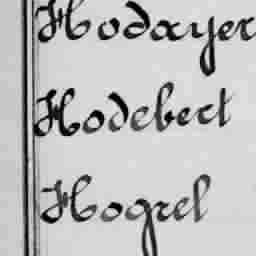 Hodayer
Hodebert
Hogrel